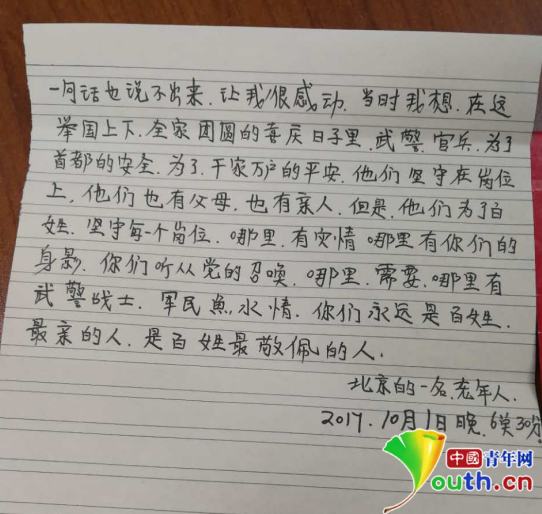 一句话也说不出来.让我很感动.当时我想.在这
举国上下.全家团圆的喜庆日子里.武警官兵.为了
首都的安全.为了.千家万户的平安.他们坚守在岗位
上.他们也有父母.也有亲人.但是.他们为了百
姓.坚守每一个岗位.哪里.有灾情哪里有你们的
身影.你们听从党的召唤.哪里.需要.哪里有
武警战士.军民鱼水情.你们永远是百姓.
最亲的人.是百姓最敬佩的人.
北京的一名老年人.
2017.10月1日晚.6吴30分
中國青年网
youth.cn